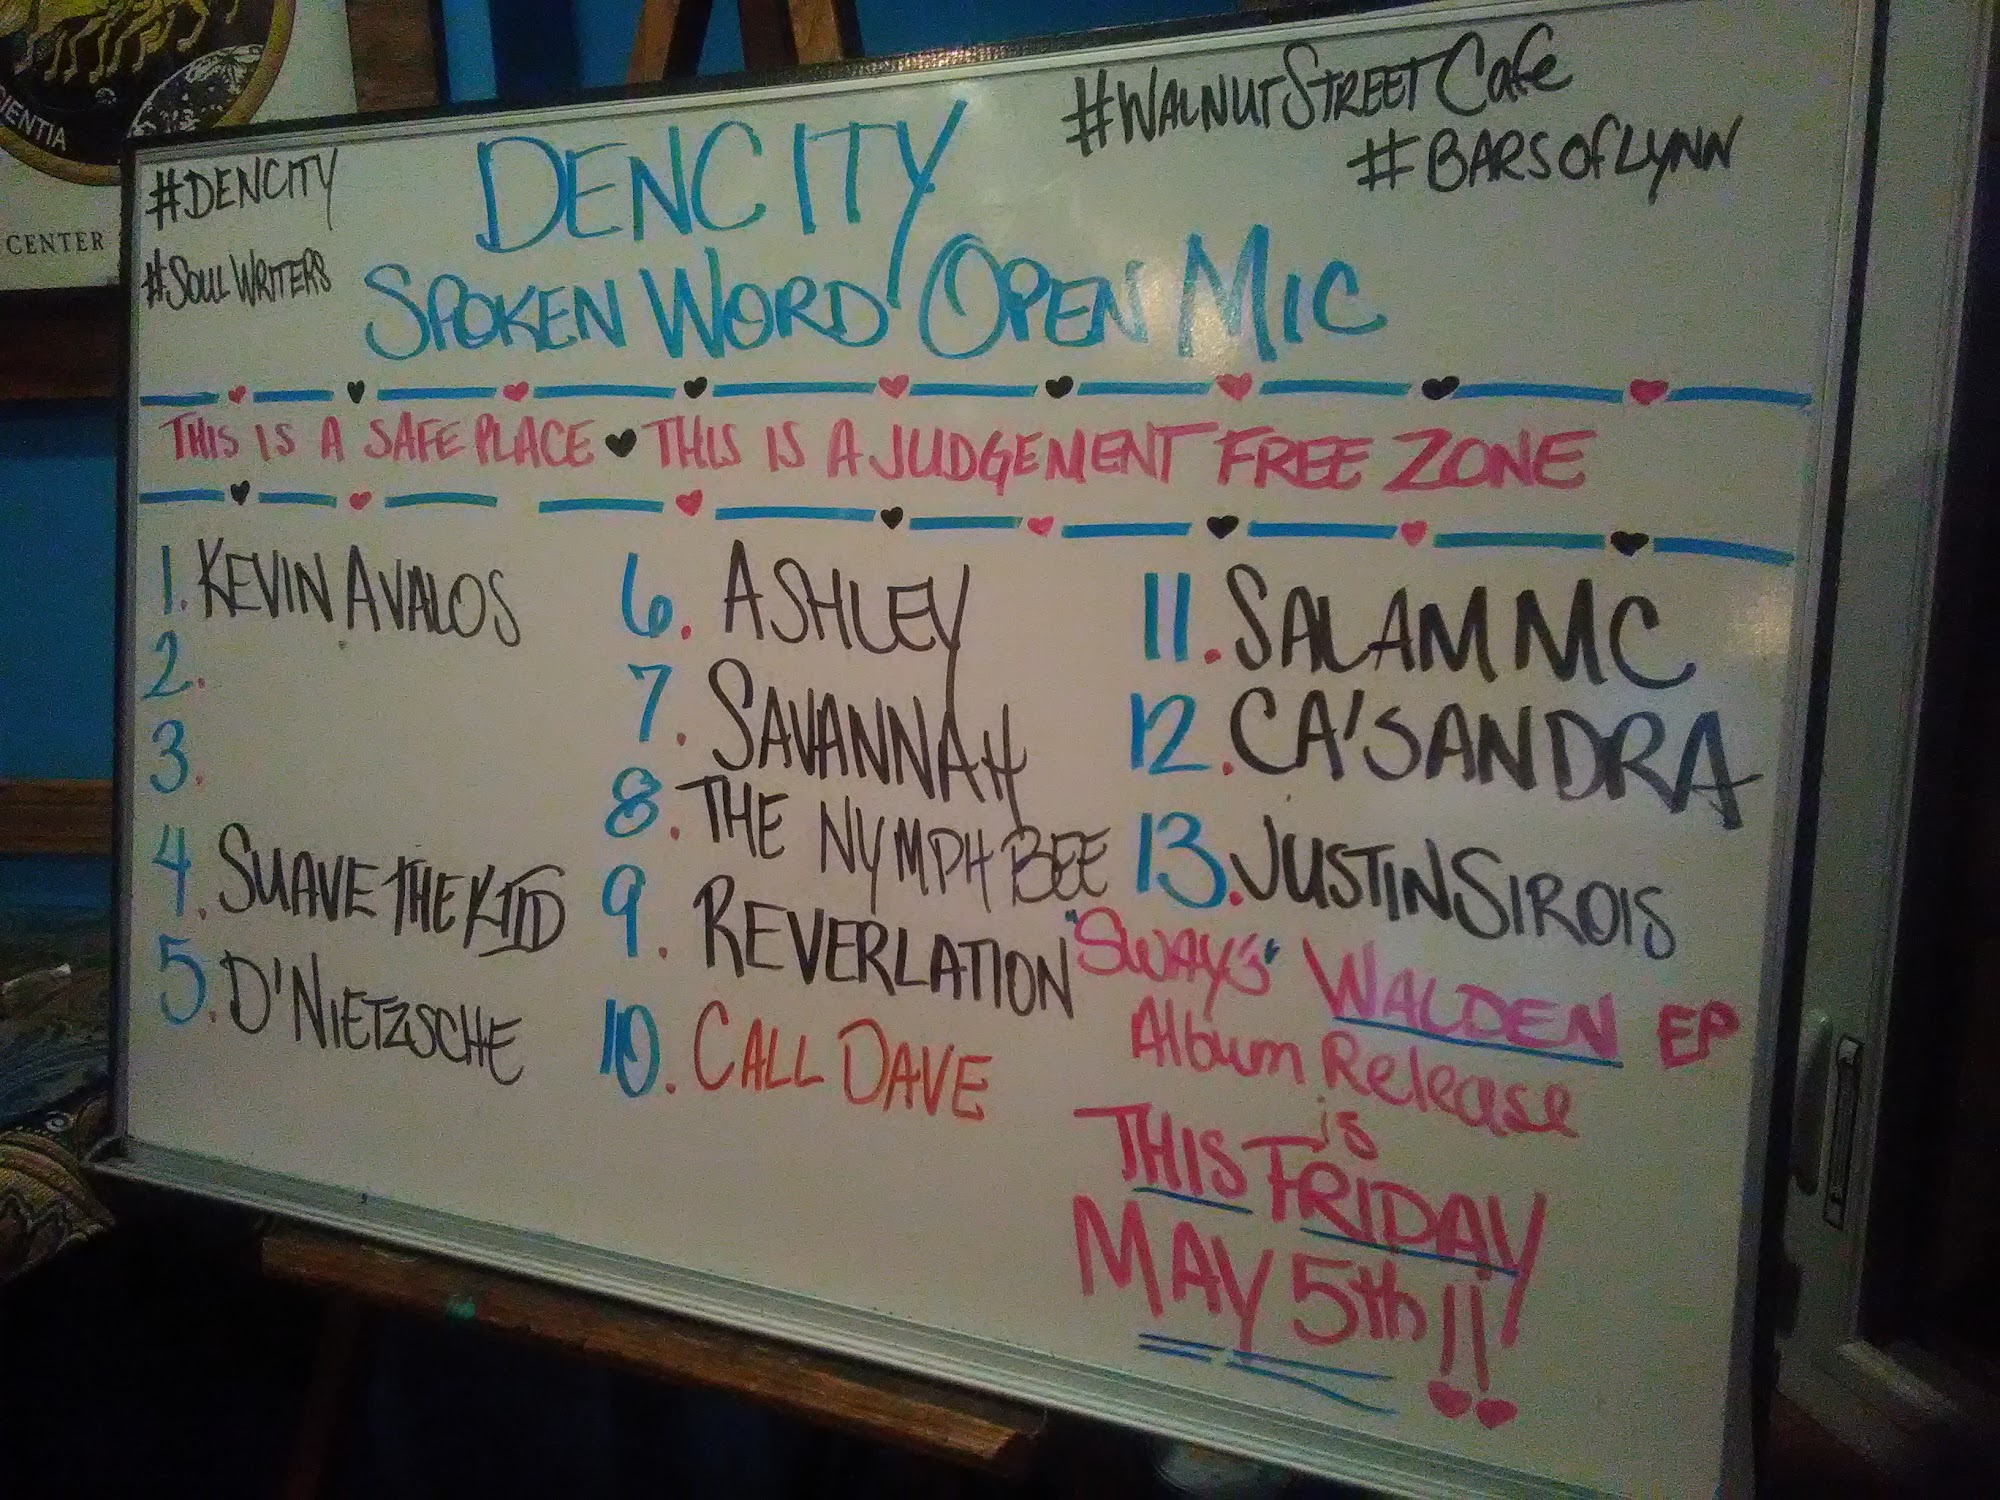 IENTIA
CENTER
#DENCITY
#SOULWRITERS
DENCITY
SPOKEN WORD OPEN MIC
#WALNUTSTREETCafe
#BARSOfLYNN
THIS IS A SAFE PLACE ♥ THIS IS A JUDGEMENT FREE ZONE
1. KEVIN AVALOS
2.
3.
4. SUAVE THE KIID
5. D'NIETZSCHE
6. ASHLEY
7. SAVANNAH
8. THE NYMPH BEE
9. REVERLATION
10. CALL DAVE
11. SALAM MC
12. CA'SANDRA
13. JUSTIN SIROIS
"SWAY'S" WALDEN EP
Album Release
is
THIS FRIDAY
MAY 5th!!